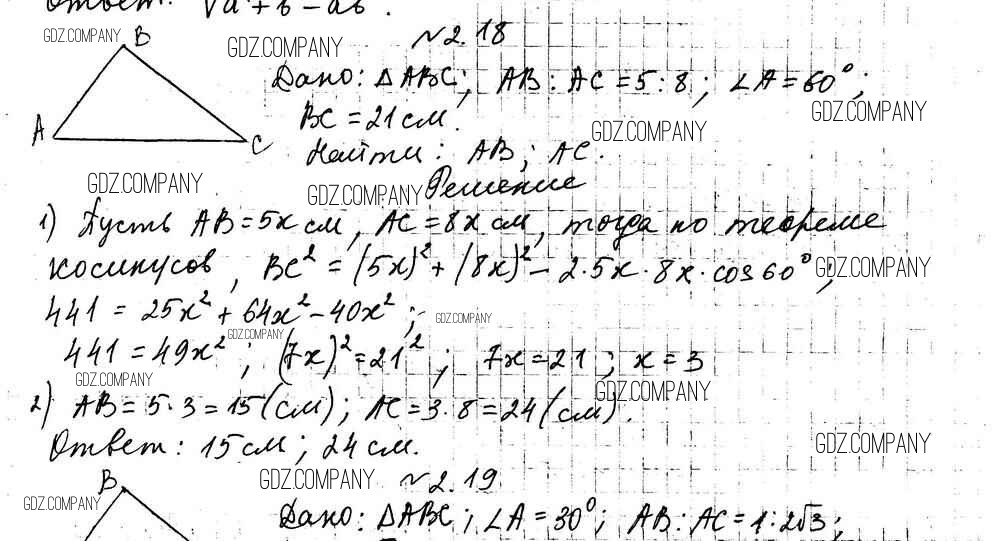 Ответ: √a²+b²-ab.
GDZ.COMPANY
B
GDZ.COMPANY
№2.18
Дано: ΔABC; AB:AC=5:8; ∠A=60°;
GDZ.COMPANY
BC=21см.
GDZ.COMPANY
A
C
Найти: AB; AC.
GDZ.COMPANY
GDZ.COMPANY
Решение
1) Пусть AB=5x см, AC=8x см, тогда по теореме
косинусов, BC²=(5x)²+(8x)²-2·5x·8x·cos60°;
GDZ.COMPANY
441=25x²+64x²-40x²;
GDZ.COMPANY
GDZ.COMPANY
441=49x²; (7x)²=21²; 7x=21; x=3
GDZ.COMPANY
GDZ.COMPANY
2) AB=5·3=15(см); AC=3·8=24(см).
Ответ: 15см; 24см.
GDZ.COMPANY
B
GDZ.COMPANY
№2.19
GDZ.COMPANY
Дано: ΔABC; ∠A=30°; AB:AC=1:2√3;